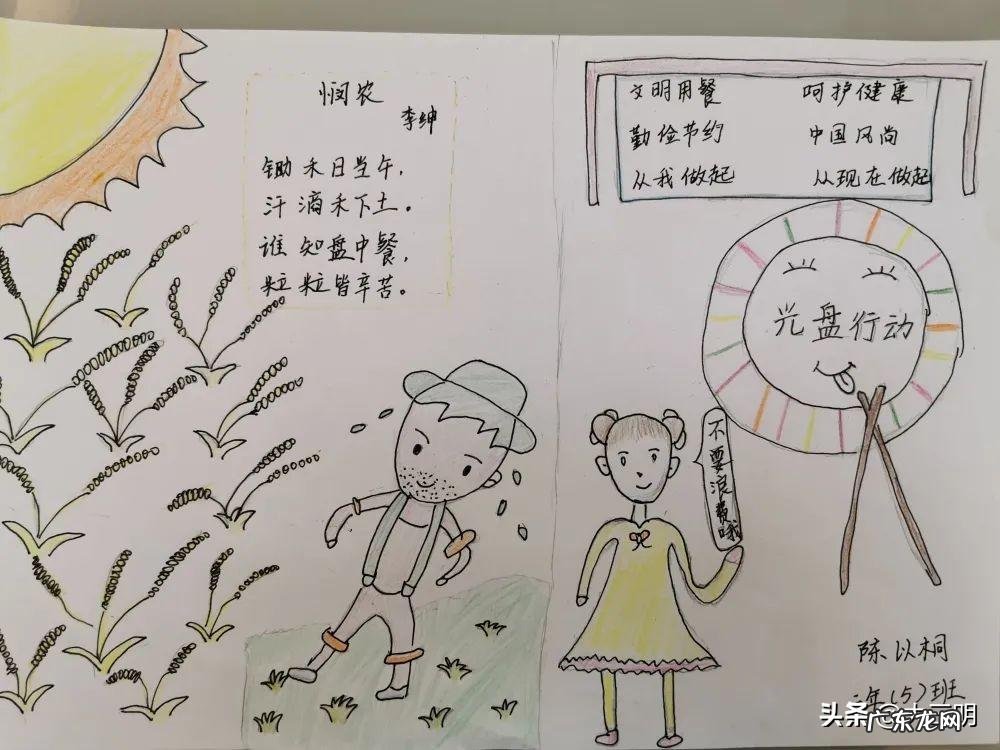 悯农
李绅
锄禾日当午，
汗滴禾下土。
谁知盘中餐，
粒粒皆辛苦。
文明用餐 呵护健康
勤俭节约 中国风尚
从我做起 从现在做起
光盘行动
不要浪费哦
陈以桐
二年（5）班
头条
广东龙网